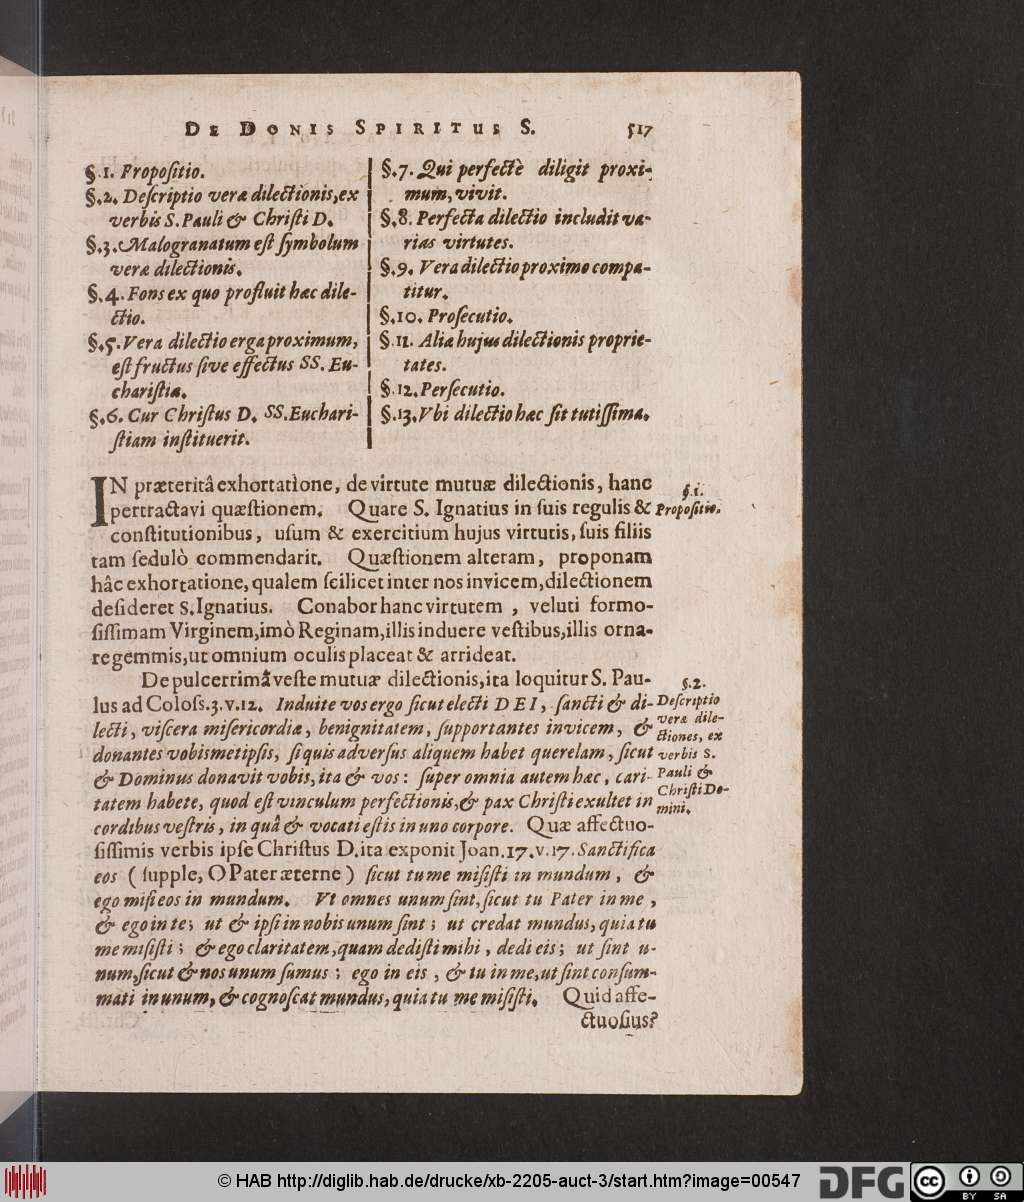 DE DONIS SPIRITUS S. 517
§.1. Propoſitio.
§.2. Deſcriptio veræ dilectionis, ex
verbis S. Pauli & Chriſti D.
§.3. Malogranatum eſt ſymbolum
veræ dilectionis.
§.4. Fons ex quo profluit hæc dile-
ctio.
§.5. Vera dilectio erga proximum,
eſt fructus ſive effectus SS. Eu-
chariſtiæ.
§.6. Cur Chriſtus D. SS. Euchari-
ſtiam inſtituerit.
§.7. Qui perfectè diligit proxi-
mum, vivit.
§.8. Perfecta dilectio includit va-
rias virtutes.
§.9. Vera dilectio proximo compa-
titur.
§.10. Proſecutio.
§.11. Aliæ hujus dilectionis proprie-
tates.
§.12. Perſecutio.
§.13. Vbi dilectio hæc ſit tutiſſima.
IN præteritâ exhortatione, de virtute mutuæ dilectionis, hanc
pertractavi quæſtionem. Quare S. Ignatius in ſuis regulis &
conſtitutionibus, uſum & exercitium hujus virtutis, ſuis filiis
tam ſedulò commendarit. Quæſtionem alteram, proponam
hâc exhortatione, qualem ſcilicet inter nos invicem, dilectionem
deſideret S. Ignatius. Conabor hanc virtutem, veluti formo-
ſiſſimam Virginem, imò Reginam, illis induere veſtibus, illis orna-
re gemmis, ut omnium oculis placeat & arrideat.
§.1.
Propoſitio.
De pulcerrimâ veſte mutuæ dilectionis, ita loquitur S. Pau-
lus ad Coloſs.3.v.12. Induite vos ergo ſicut electi DEI, ſancti & di-
lecti, viſcera miſericordiæ, benignitatem, ſupportantes invicem, &
donantes vobismetipſis, ſi quis adverſus aliquem habet querelam, ſicut
& Dominus donavit vobis, ita & vos: ſuper omnia autem hæc, cari-
tatem habete, quod eſt vinculum perfectionis, & pax Chriſti exultet in
cordibus veſtris, in quâ & vocati eſtis in uno corpore. Quæ affectuo-
ſiſſimis verbis ipſe Chriſtus D. ita exponit Joan.17.v.17. Sanctifica
eos (ſupple, O Pater æterne) ſicut tu me miſiſti in mundum, &
ego miſi eos in mundum. Vt omnes unum ſint, ſicut tu Pater in me,
& ego in te; ut & ipſi in nobis unum ſint; ut credat mundus, quia tu
me miſiſti; & ego claritatem, quam dediſti mihi, dedi eis; ut ſint u-
num, ſicut & nos unum ſumus; ego in eis, & tu in me, ut ſint conſum-
mati in unum, & cognoſcat mundus, quia tu me miſiſti. Quid affe-
ctuoſius?
§.2.
Deſcriptio
veræ dile-
ctiones, ex
verbis S.
Pauli &
Chriſti Do-
mini.
© HAB http://diglib.hab.de/drucke/xb-2205-auct-3/start.htm?image=00547
DFG
cc BY SA